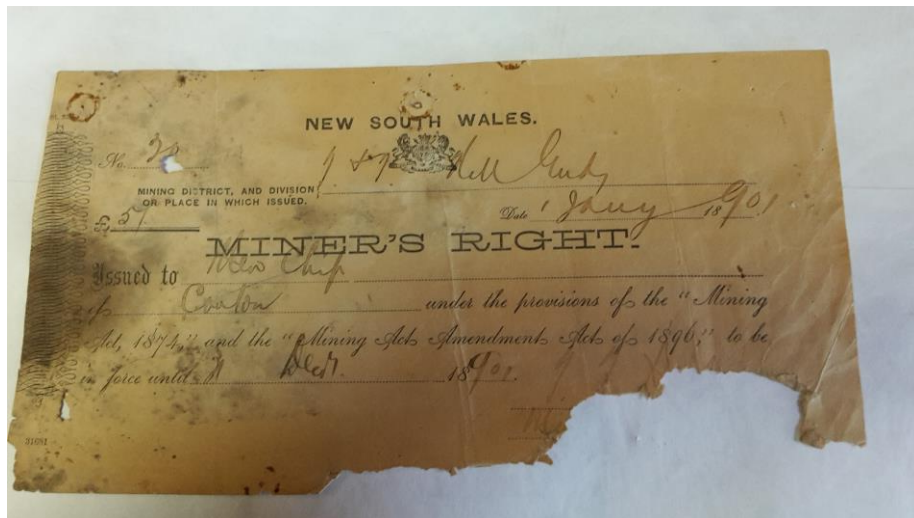 NEW SOUTH WALES.
No. 20
MINING DISTRICT, AND DIVISION
OR PLACE IN WHICH ISSUED.
£ 5/
Date 1 Jany 18901
MINER'S RIGHT.
Issued to Chip
of under the provisions of the "Mining
Act, 1874," and the "Mining Act Amendment Act of 1896," to be
in force until 31 Decr. 18901.
31681